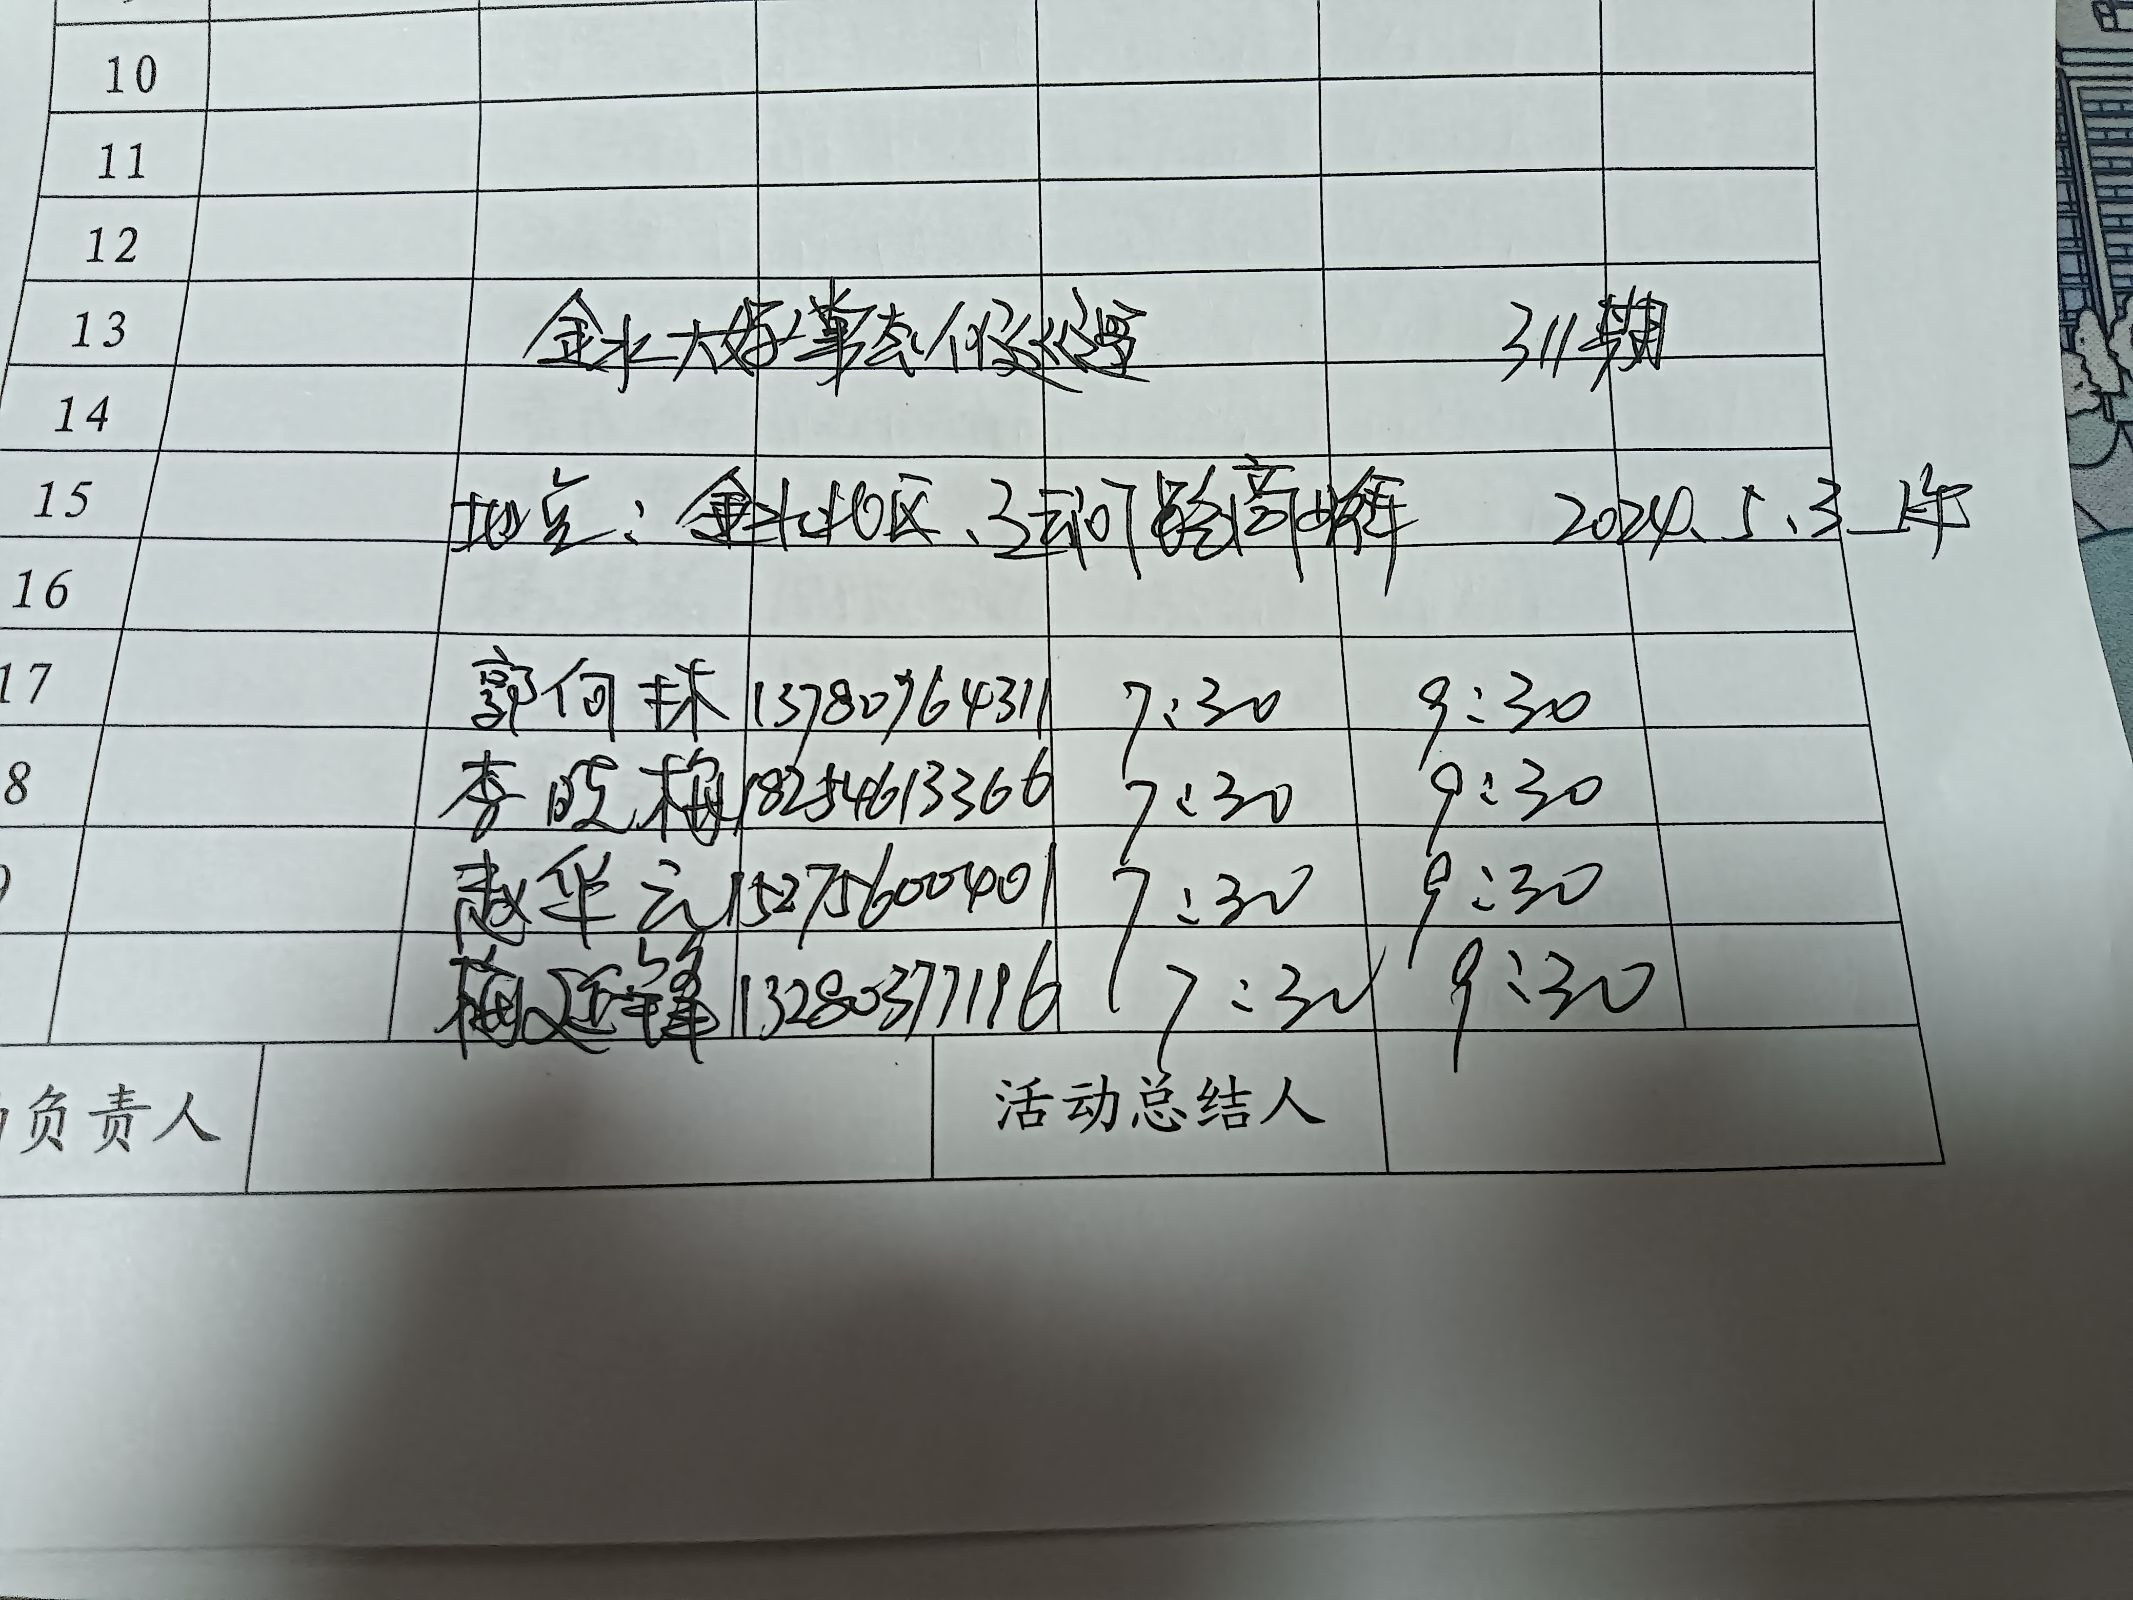 10
11
12
13 金水大 311期
14
15 地点：金水北区、 2024.5.3上午
16
17 郭何珠 13780764311 7:30 9:30
8 李晓梅 18254613366 7:30 9:30
赵华云 15275600401 7:30 9:30
梅延锋 13280377196 7:30 9:30
负责人 活动总结人